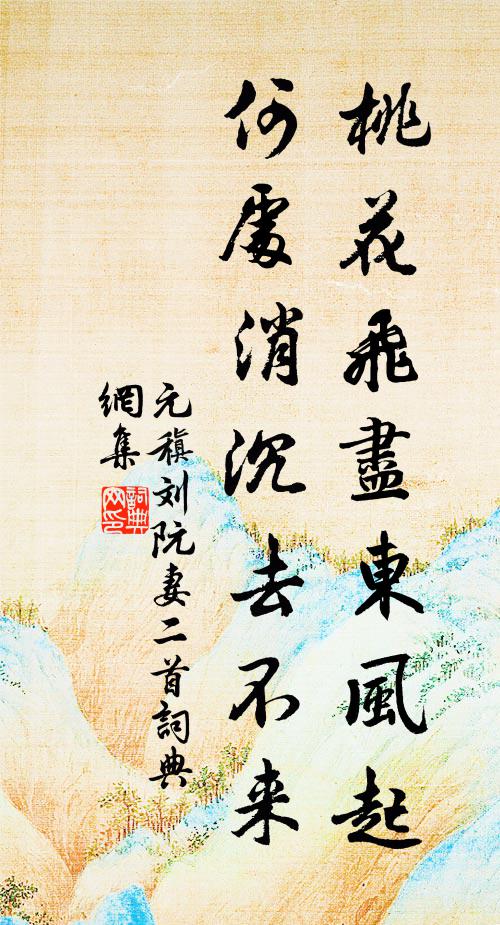 桃花飛盡東風起
何處消沉去不来
元稹刘阮妻二首詞典
網集
詞典
网印